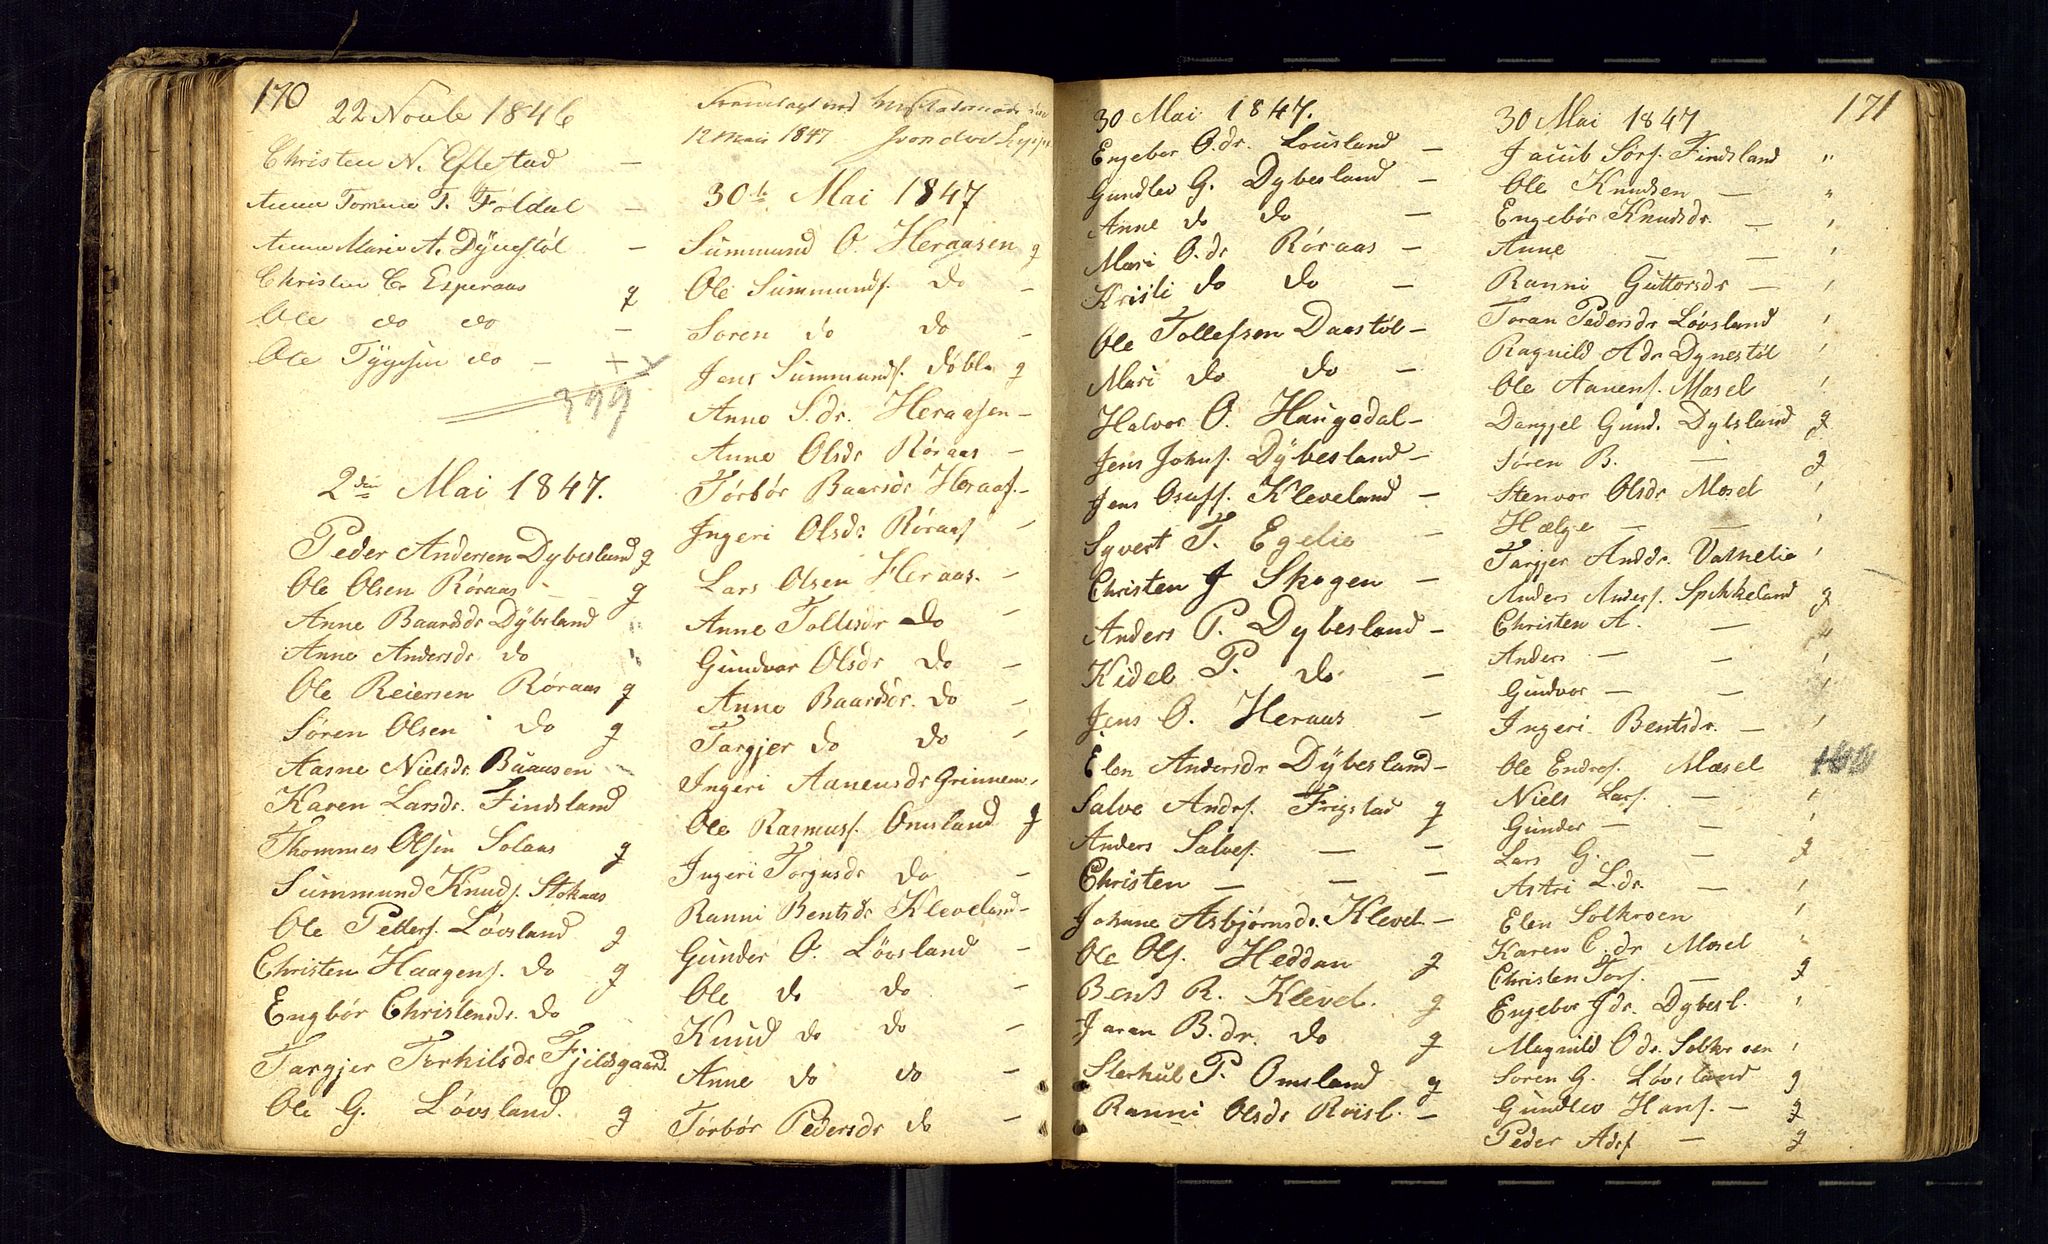 170
22 Novbr 1846
Christen N. Eftestad —
Anne Tomine T. Foldal —
Anne Marie A. Dynestöl —
Christen C. Esperaas g
Ole do do —
Ole Tygesen do — +
399
2den Mai 1847.
Peder Andersen Dybesland g
Ole Olsen Röraas — g
Anne Baardsdr Dybesland "
Anne Andersdr do "
Ole Reiersen Röraas g
Sören Olsen do g
Aasne Nielsdr. Buaasen
Karen Larsdr. Findsland
Thommes Olsen Solaas g
Summund Knuds. Stokaas
Ole Peders. Lövsland g
Christen Haagens. do g
Engbör Christensdr. do
Targjer Terkilsdr Fjeldsgaard.
Ole G. Lövsland. g
Fremlagt ved
12 Mai 1847
30te Mai 1847
Summund O. Heraasen g
Ole Summunds. do —
Soren do do —
Jens Summunds. döbl. g
Anne S.dr. Heraasen —
Anne Olsdr Röraas —
Torbör Baarsdr Heraas. —
Ingeri Olsdr. Röraas —
Lars Olsen Heraas. —
Anne Tollisdr do —
Gundvor Olsdr do —
Anne Baardsdr. do —
Targjer do do —
Ingeri Aanensdr Grinnem —
Ole Rasmuss. Omsland g
Ingeri Torgusdr do —
Ranni Bentsdr Kleveland —
Gunder O. Lövsland —
Ole do do —
Knud do do —
Anne do do —
Torbör Pedersdr do —
30 Mai 1847.
Engebor O.dr. Lousland —
Gundlev G. Dybesland —
Anne do do —
Mari O.dr Röraas —
Kristi do do —
Ole Tollefsen Daastöl —
Mari do do —
Halvor O. Haugedal —
Jens Johns. Dybesland —
Jens Osufs. Kleveland —
Syvert T. Egelie —
Christen J Skogen —
Anders P. Dybesland —
Kidel P. do —
Jens O. Heraas —
Elen Andersdr Dybesland —
Salve Anders. Frigstad g
Anders Salves. — —
Christen — — —
Johane Asbjörnsdr. Klevel —
Ole Ols. Heddan g
Bent R. Klevel. g
Jaran B.dr. do g
Sterkul P. Omsland g
Ranni Olsdr Roisl. —
171
30 Mai 1847
Jacub Sörs. Findsland "
Ole Knudsen — "
Engebör Knudsdr. — '
Anne — — '
Ranni Guttorsdr — '
Toran Pedersdr Lövsland '
Ragnild A dr Dynestöl '
Ole Aanens. Mosel '
Danjel Gund. Dybsland g
Sören B. — g
Stenvor Olsdr Mosel '
Hælge — — '
Targjer Anddr. Vatnelie '
Anders Anders. Spikkeland g
Christen A. — "
Anders — — '
Gundvor — — '
Ingeri Bentsdr. — '
Ole Endres. Mosel
Niels Lars. — '
Gunder — — '
Lars G. — g
Astri L.dr. — '
Elen Solkroen '
Karen C.dr Mosel
Christen Tors. — g
Engebor J dr. Dybesl. '
Magnild O dr. Solkroen '
Soren G. Lövsland g
Gundlev Hans. — g
Peder Ads. — g